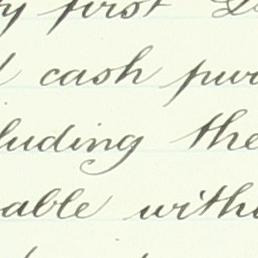 y first
cash pur
luding the
able with